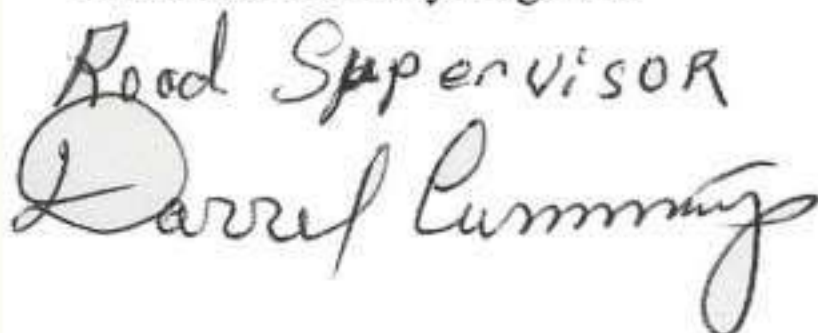 Road Supervisor
Darrel Cummings